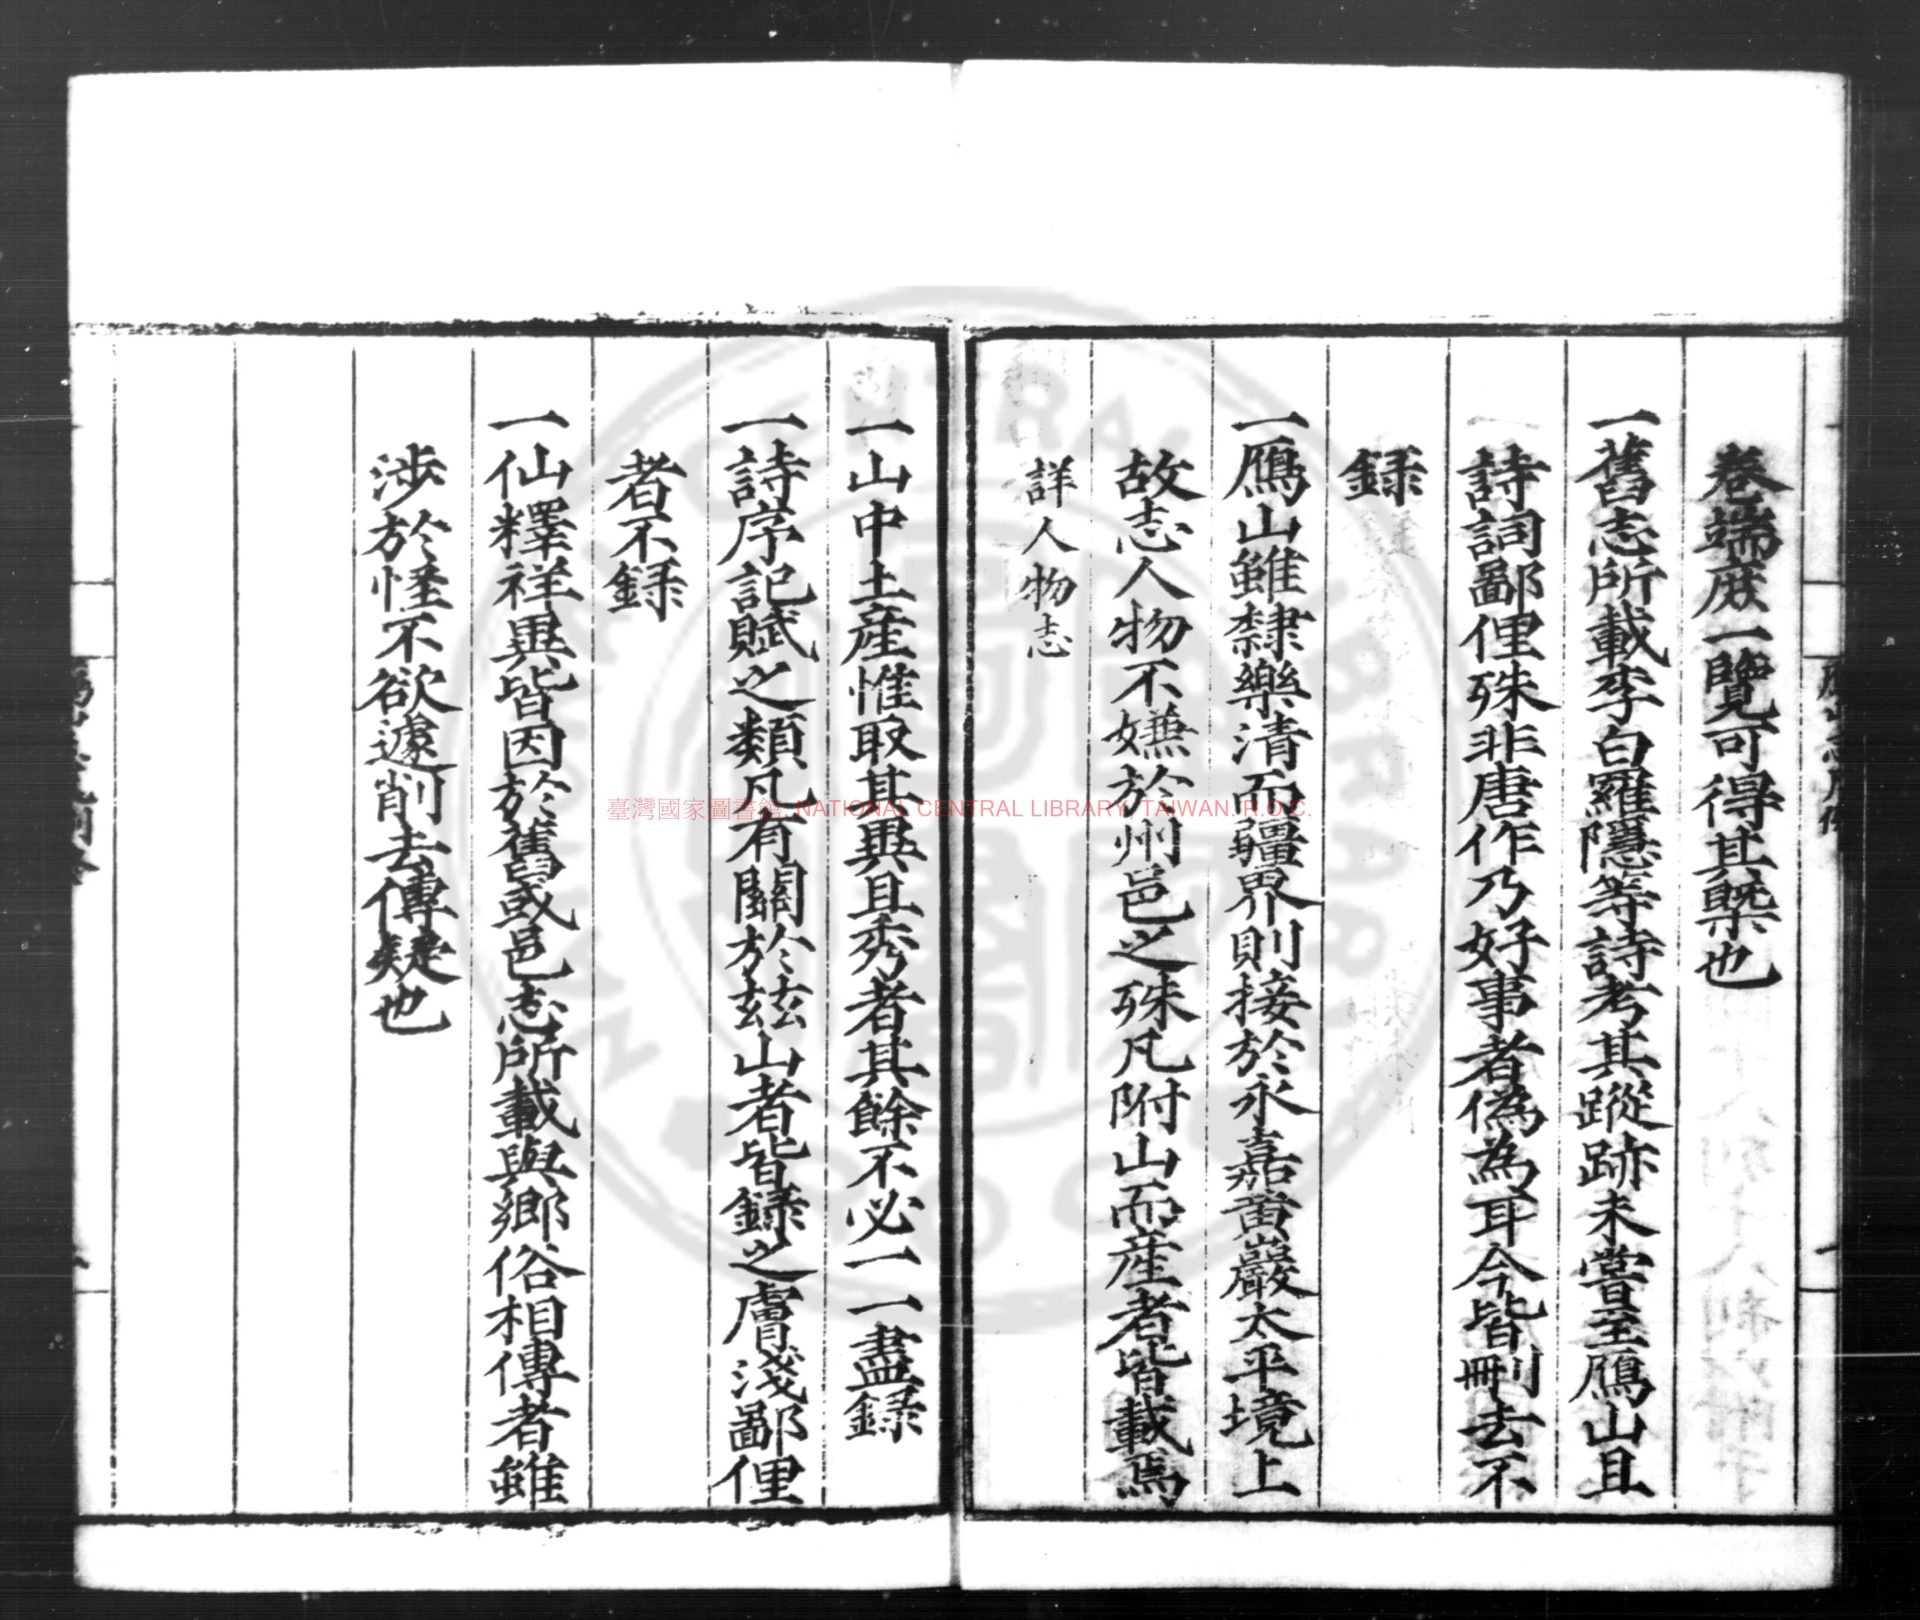 卷端庻一覽可得其槩也
一舊志所載李白羅隱等詩考其蹤跡未嘗至鴈山且
詩詞鄙俚殊非唐作乃好事者偽為耳今皆刪去不
録
一鴈山雖隸樂清而疆界則接於永嘉黄巖太平境上
故志人物不嫌於州邑之殊凡附山而產者皆載焉
詳人物志
一山中土產惟取其異且秀者其餘不必一一盡録
一詩序記賦之類凡有關於玆山者皆録之膚淺鄙俚
者不録
一仙釋祥異皆因於舊或邑志所載與鄉俗相傳者雖
涉於怪不欲遽削去傳疑也
臺灣國家圖書館, NATIONAL CENTRAL LIBRARY, TAIWAN, R.O.C.